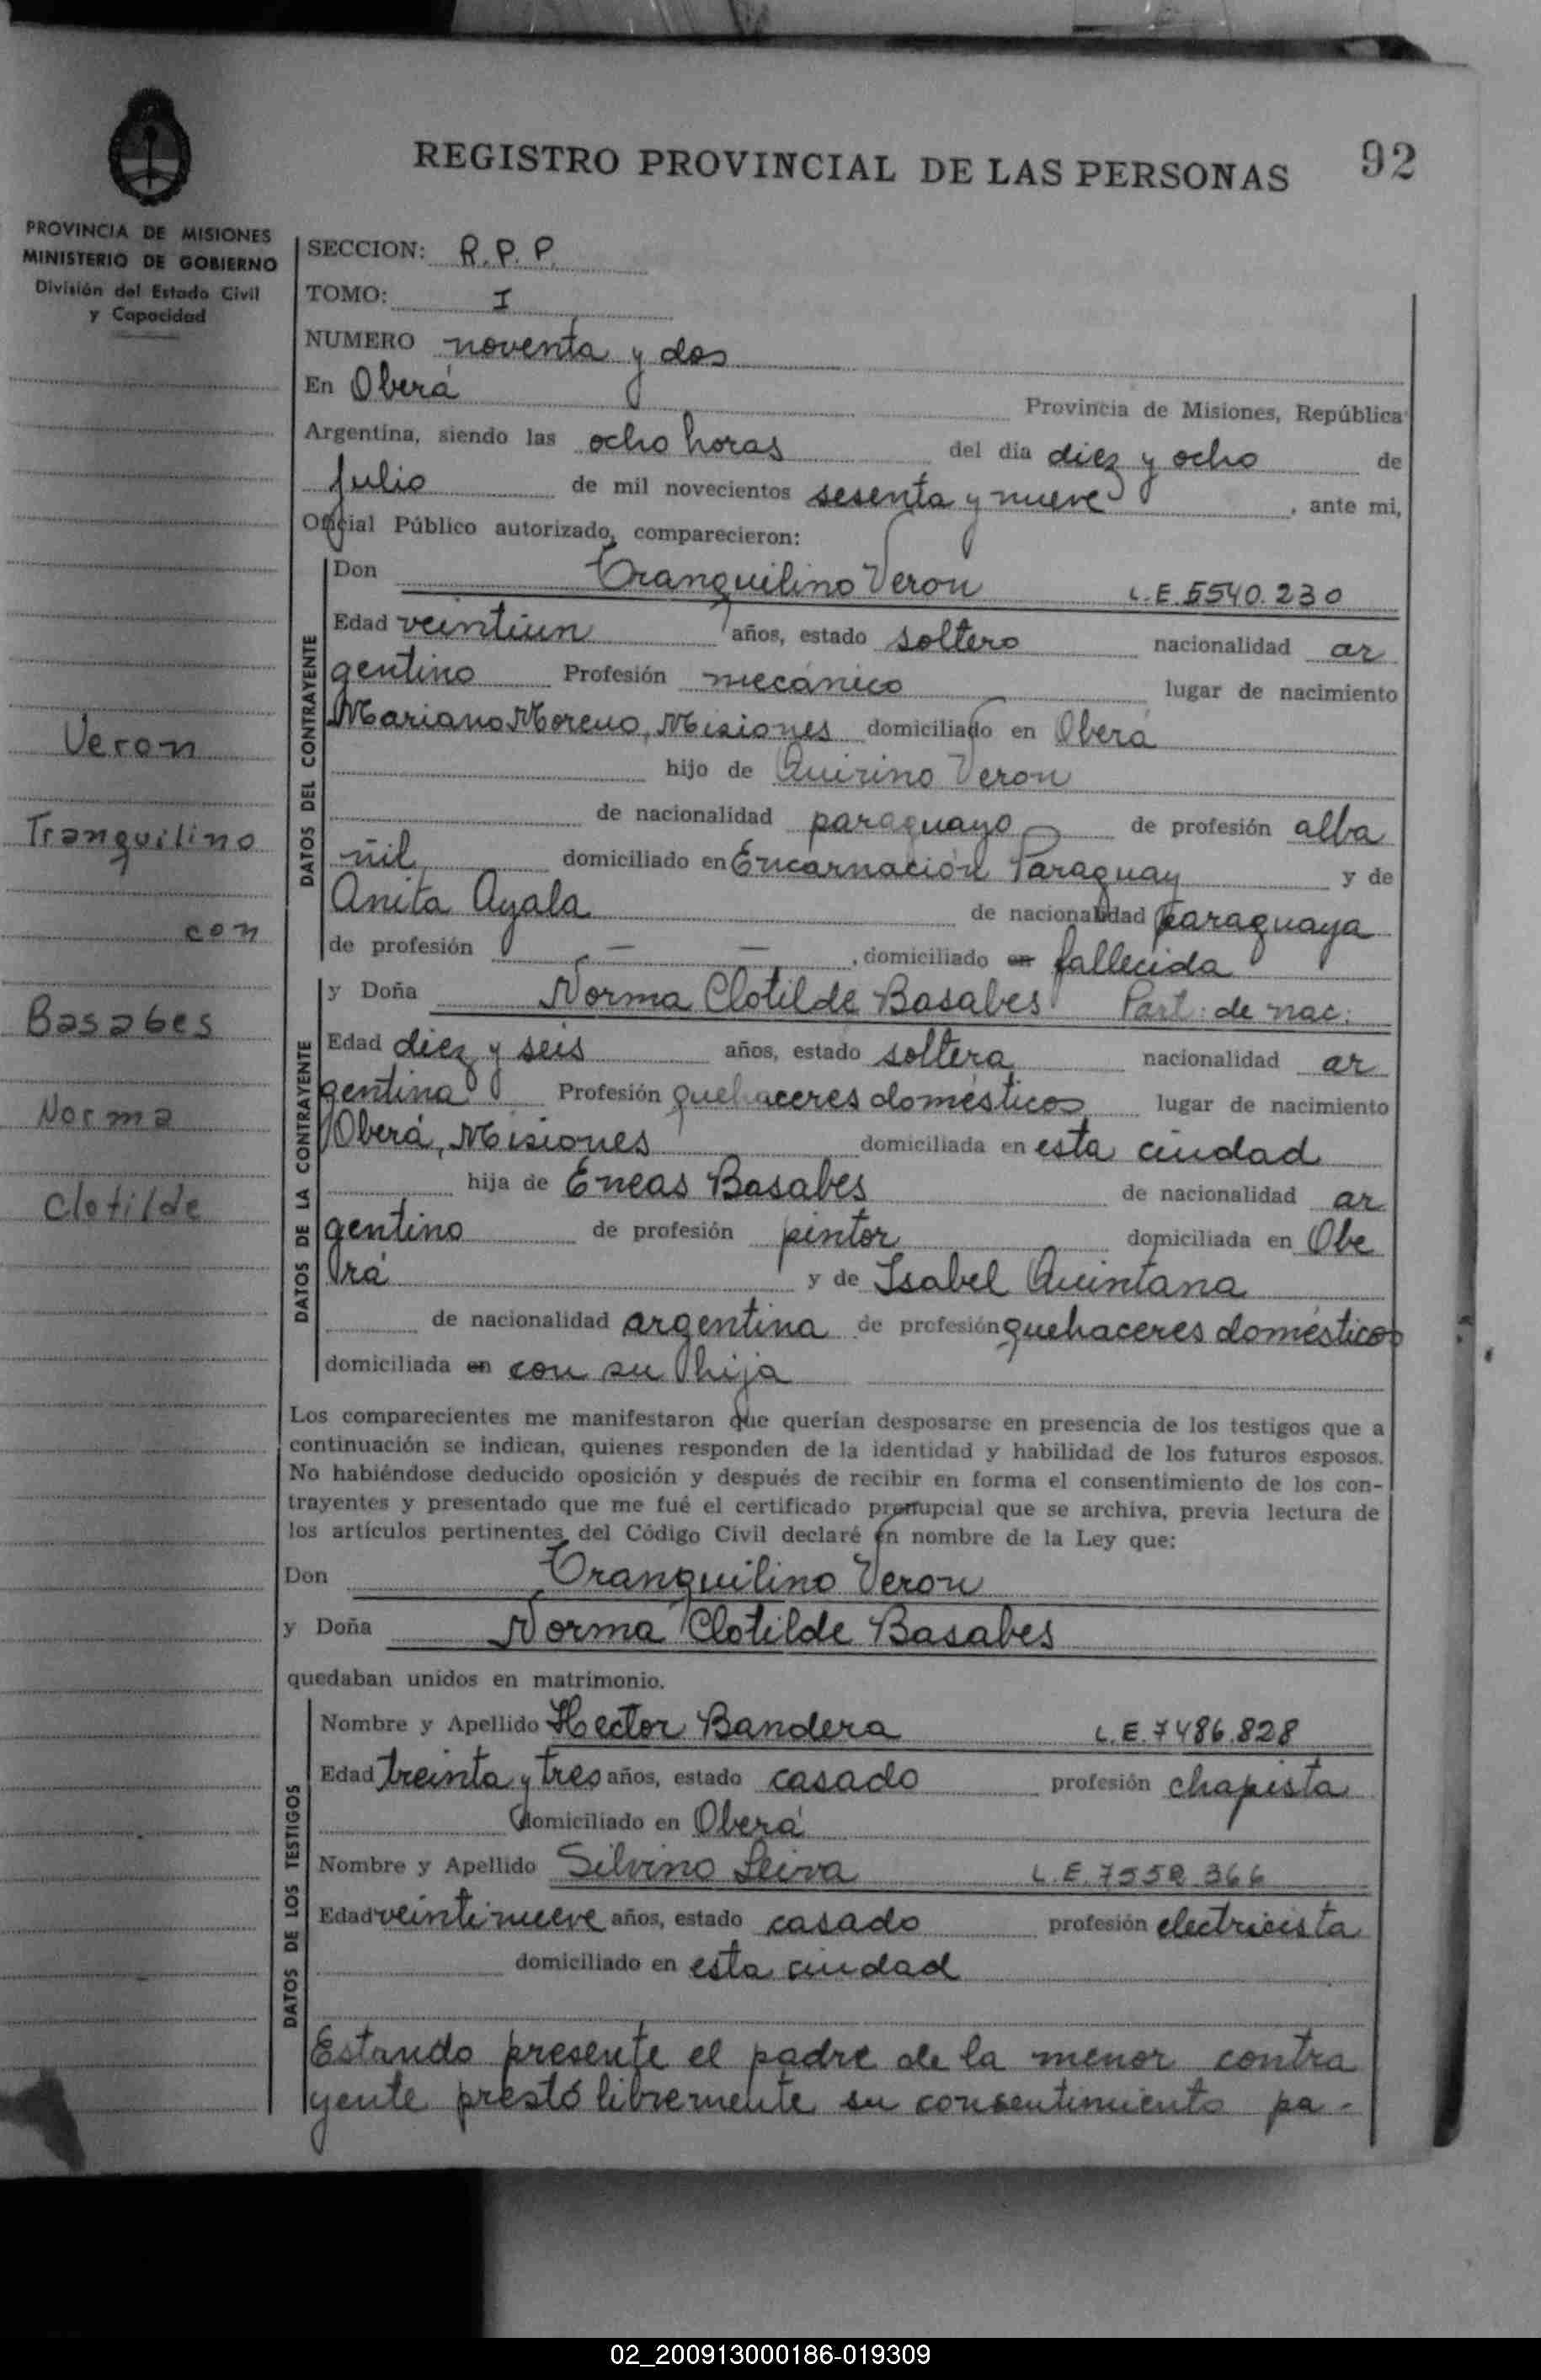 REGISTRO PROVINCIAL DE LAS PERSONAS 92
PROVINCIA DE MISIONES
MINISTERIO DE GOBIERNO
División del Estado Civil
y Capacidad
Veron
Tranquilino
con
Basabes
Norma
Clotilde
SECCION: R.P.P.
TOMO: I
NUMERO noventa y dos
En Oberá Provincia de Misiones, República
Argentina, siendo las ocho horas del dia diez y ocho de
julio de mil novecientos sesenta y nueve, ante mi,
Oficial Público autorizado, comparecieron:
DATOS DEL CONTRAYENTE
Don Tranquilino Veron L.E. 5540.230
Edad veintiun años, estado soltero nacionalidad ar
gentino Profesión mecánico lugar de nacimiento
Mariano Moreno, Misiones domiciliado en Oberá
hijo de Quirino Veron
de nacionalidad paraguayo de profesión alba
ñil domiciliado en Encarnación Paraguay y de
Anita Ayala de nacionalidad paraguaya
de profesión — — , domiciliado en fallecida
DATOS DE LA CONTRAYENTE
y Doña Norma Clotilde Basabes Part: de nac:
Edad diez y seis años, estado soltera nacionalidad ar
gentina Profesión quehaceres domésticos lugar de nacimiento
Oberá, Misiones domiciliada en esta ciudad
hija de Eneas Basabes de nacionalidad ar
gentino de profesión pintor domiciliada en Obe
rá y de Isabel Quintana
de nacionalidad argentina de profesión quehaceres domésticos
domiciliada en con su hija
Los comparecientes me manifestaron que querían desposarse en presencia de los testigos que a
continuación se indican, quienes responden de la identidad y habilidad de los futuros esposos.
No habiéndose deducido oposición y después de recibir en forma el consentimiento de los con-
trayentes y presentado que me fué el certificado prenupcial que se archiva, previa lectura de
los artículos pertinentes del Código Civil declaré en nombre de la Ley que:
Don Tranquilino Veron
y Doña Norma Clotilde Basabes
quedaban unidos en matrimonio.
DATOS DE LOS TESTIGOS
Nombre y Apellido Hector Bandera L.E. 7486.828
Edad treinta y tres años, estado casado profesión chapista
domiciliado en Oberá
Nombre y Apellido Silvino Leiva L.E. 7552.366
Edad veintinueve años, estado casado profesión electricista
domiciliado en esta ciudad
Estando presente el padre de la menor contra
yente prestó libremente su consentimiento pa-
02_200913000186-019309